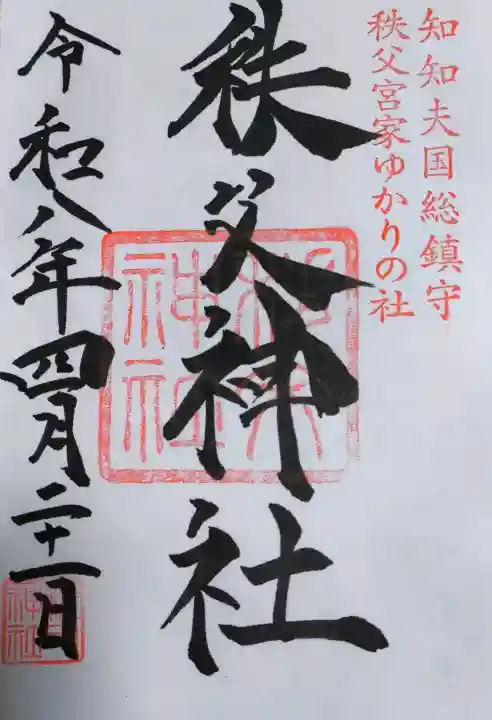 知知夫国総鎮守
秩父宮家ゆかりの社
秩父神社
秩父神社
令和八年四月二十一日